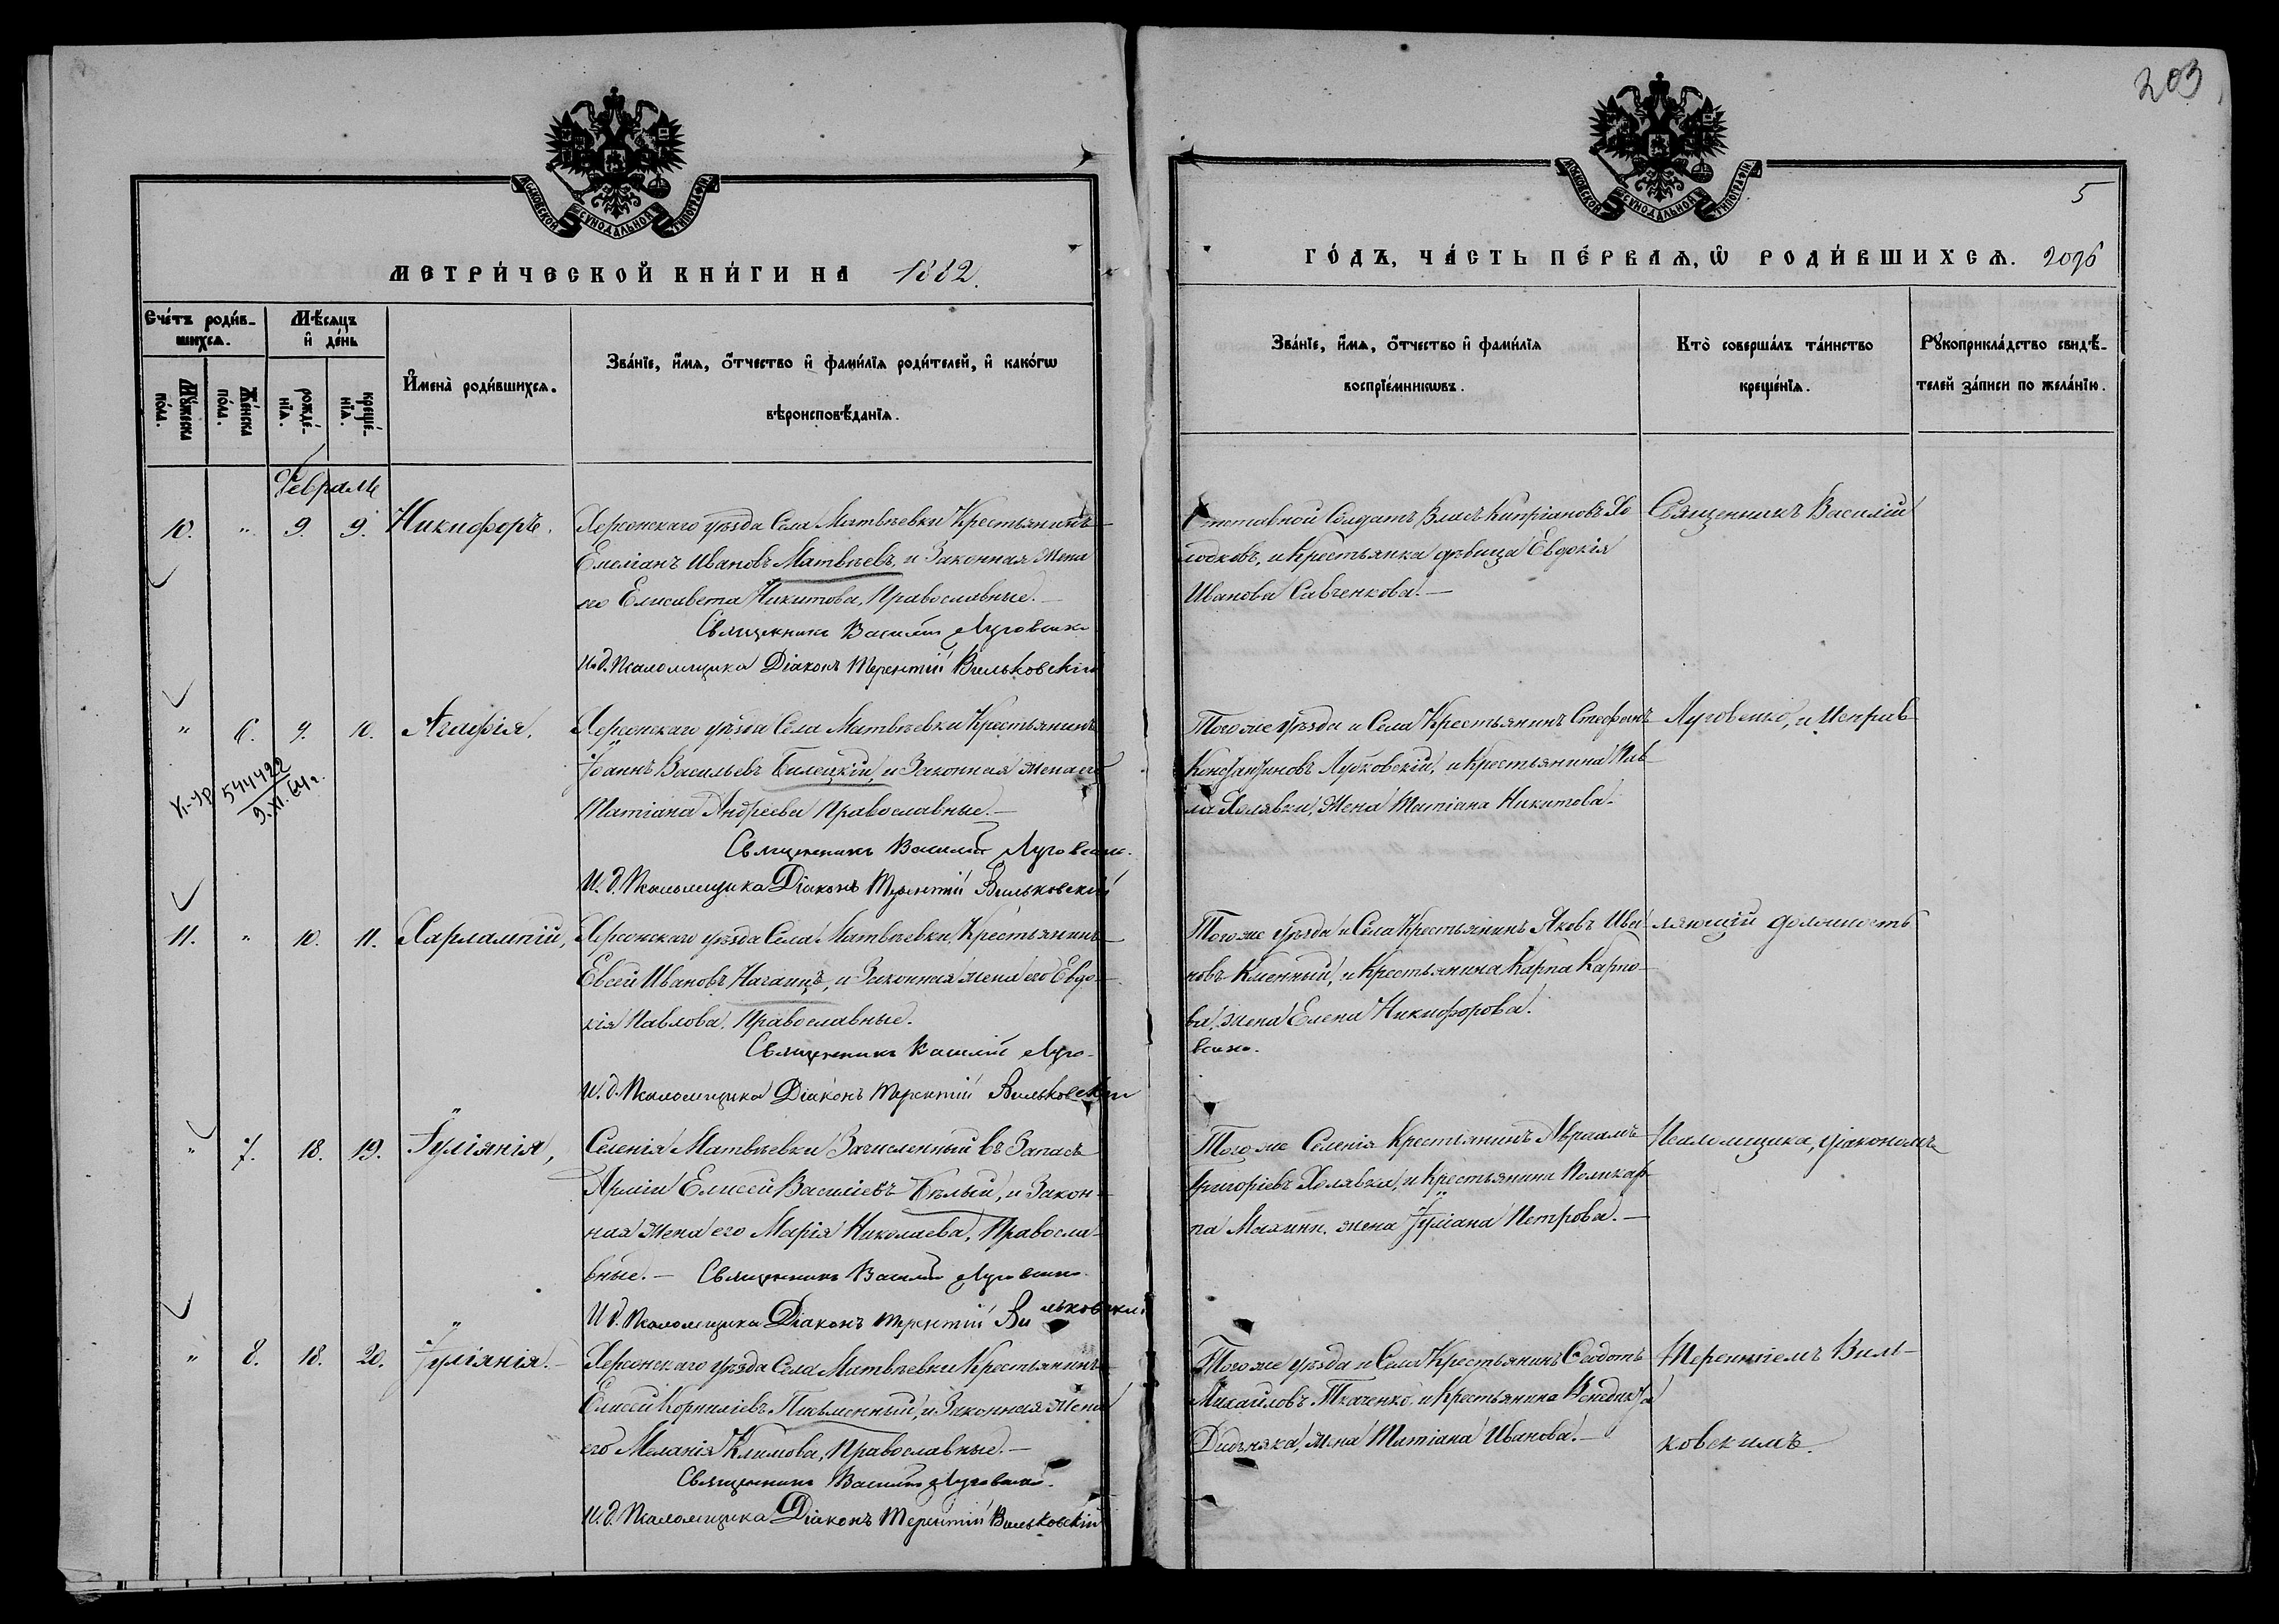 203
МОСКОВСКОЙ СѴНОДАЛЬНОЙ ТИПОГРАФІИ
МОСКОВСКОЙ СѴНОДАЛЬНОЙ ТИПОГРАФІИ
5
МЕТРИ́ЧЕСКОЙ КНИ́ГИ НА 1882.
ГО́ДЪ, ЧА́СТЬ ПЕ́РВАѦ, Ѡ҆ РОДИ́ВШИХСѦ.
Сче́тъ роди́в-
шихсѧ.
Мѣ́сѧцъ
и҆ де́нь
Мꙋ́жеска
по́ла.
Же́нска
по́ла.
рожде́-
нїѧ.
креще́-
нїѧ.
И҆мена̀ роди́вшихсѧ.
Зва́нїе, и҆́мѧ, ѻ҆́тчество и҆ фами́лїѧ роди́телей, и҆ како́гѡ
вѣроисповѣ́данїѧ.
Зва́нїе, и҆́мѧ, ѻ҆́тчество и҆ фами́лїѧ
воспрїе́мникѡвъ.
Кто̀ соверша́лъ та́инство
креще́нїѧ.
Рꙋкоприкла́дство свидѣ́-
телей за́писи по жела́нїю.
Февраль
10. " 9. 9. Никифоръ.
Херсонскаго уѣзда Села Матвѣевки Крестьянинъ
Емеліанъ Ивановъ Матвѣевъ, и Законная Жена
его Елисавета Никитова, Православные.—
Священникъ Василій Луговенко
И.д. Псаломщика Діаконъ Терентій Вильковскій
Отставной Солдатъ Власъ Кипріановъ Хо
лодковъ, и Крестьянка дѣвица Евдокія
Иванова Савченкова.—
Священникъ Василій
" 6. 9. 10. Агафія.
544422
9.XI.64г.
Херсонскаго уѣзда Села Матвѣевки Крестьянинъ
Іоаннъ Васильевъ Билецкій, и Законная Жена его
Татіана Андреева Православные.—
Священникъ Василій Луговенко.
И.д. Псаломщика Діаконъ Терентій Вильковскій
Того же уѣзда и Села Крестьянинъ Стефанъ
Константиновъ Лубковскій, и крестьянина Пав
ла Холявки, Жена Татіана Никитова.
Луговенко, и Исправ
11. " 10. 11. Харлампій,
Херсонскаго уѣзда Села Матвѣевки, Крестьянинъ
Евсей Ивановъ Нагаицъ, и Законная жена его Евдо-
кія Павлова, Православные.
Священникъ Василій Луго-
И.д. Псаломщика Діаконъ Терентій Вильковскій
Того же уѣзда и Села Крестьянинъ Яковъ Ива
новъ Кменный, и Крестьянина Карпа Карпо-
ва, жена Елена Никифорова.
венко.
ляющій должность
" 7. 18. 19. Іуліянія,
Селенія Матвѣевки Зачисленный въ Запасъ
Арміи Елисей Василіевъ Бѣлый, и Закон-
ная Жена его Марія Николаева, Правосла-
вные.— Священникъ Василій Луговенко.
И.д. Псаломщика Діаконъ Терентій Вильковскій
Того же Селенія Крестіянинъ Авраамъ
Григоріевъ Холявка, и Крестьянина Поликар
па жена Іуліана Петрова.—
Псаломщика, Діакономъ
" 8. 18. 20. Іуліянія.—
Херсонскаго уѣзда Села Матвѣевки Крестьянинъ
Елисей Корниліевъ Письменный, и Законная Жена
его Меланія Климова, Православные.—
Священникъ Василій Луговенко.
И.д. Псаломщика Діаконъ Терентій Вильковскій
Того же уѣзда и Села Крестьянинъ Ѳеодотъ
Михайловъ Ткаченко, и Крестьянина Венедикта
Дидъняка, жена Татіана Иванова.—
Терентіемъ Виль-
ковскимъ.